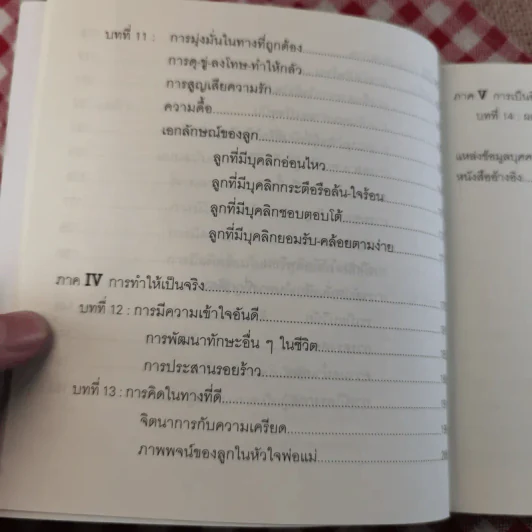 บทที่ 11 : การมุ่งมั่นในทางที่ถูกต้อง
การดุ-ขู่-ลงโทษ-ทำให้กลัว
การสูญเสียความรัก
ความดื้อ
เอกลักษณ์ของลูก
ลูกที่มีบุคลิกอ่อนไหว
ลูกที่มีบุคลิกกระตือรือล้น-ใจร้อน
ลูกที่มีบุคลิกชอบตอบโต้
ลูกที่มีบุคลิกยอมรับ-คล้อยตามง่าย
ภาค IV การทำให้เป็นจริง
บทที่ 12 : การมีความเข้าใจอันดี
การพัฒนาทักษะอื่น ๆ ในชีวิต
การประสานรอยร้าว
บทที่ 13 : การคิดในทางที่ดี
จิตนาการกับความเครียด
ภาพพจน์ของลูกในหัวใจพ่อแม่
ภาค V การเป็น
บทที่ 14 :
แหล่งข้อมูลบุคค
หนังสืออ้างอิง